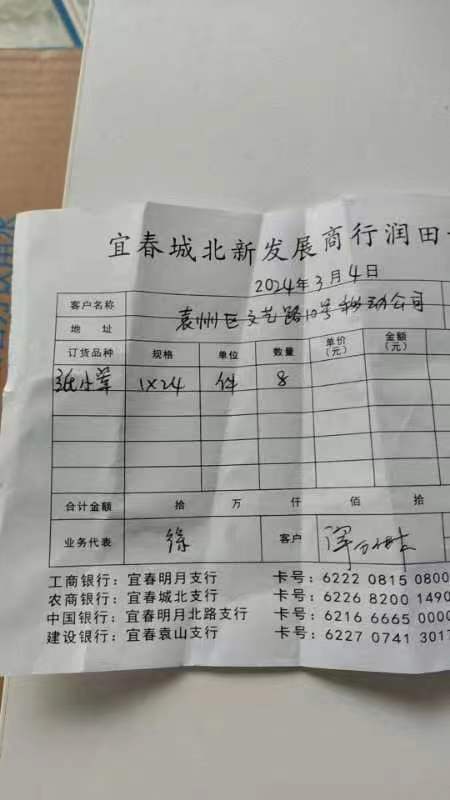 宜春城北新发展商行润田
2024年3月4日
客户名称
地 址 袁州区文艺路10号移动公司
订货品种 规格 单位 数量 单价(元) 金额(元)
1×24 件 8
合计金额 拾 万 仟 佰 拾
业务代表 徐 客户
工商银行：宜春明月支行 卡号：6222 0815 0800
农商银行：宜春城北支行 卡号：6226 8200 1490
中国银行：宜春明月北路支行 卡号：6216 6665 0000
建设银行：宜春袁山支行 卡号：6227 0741 3017